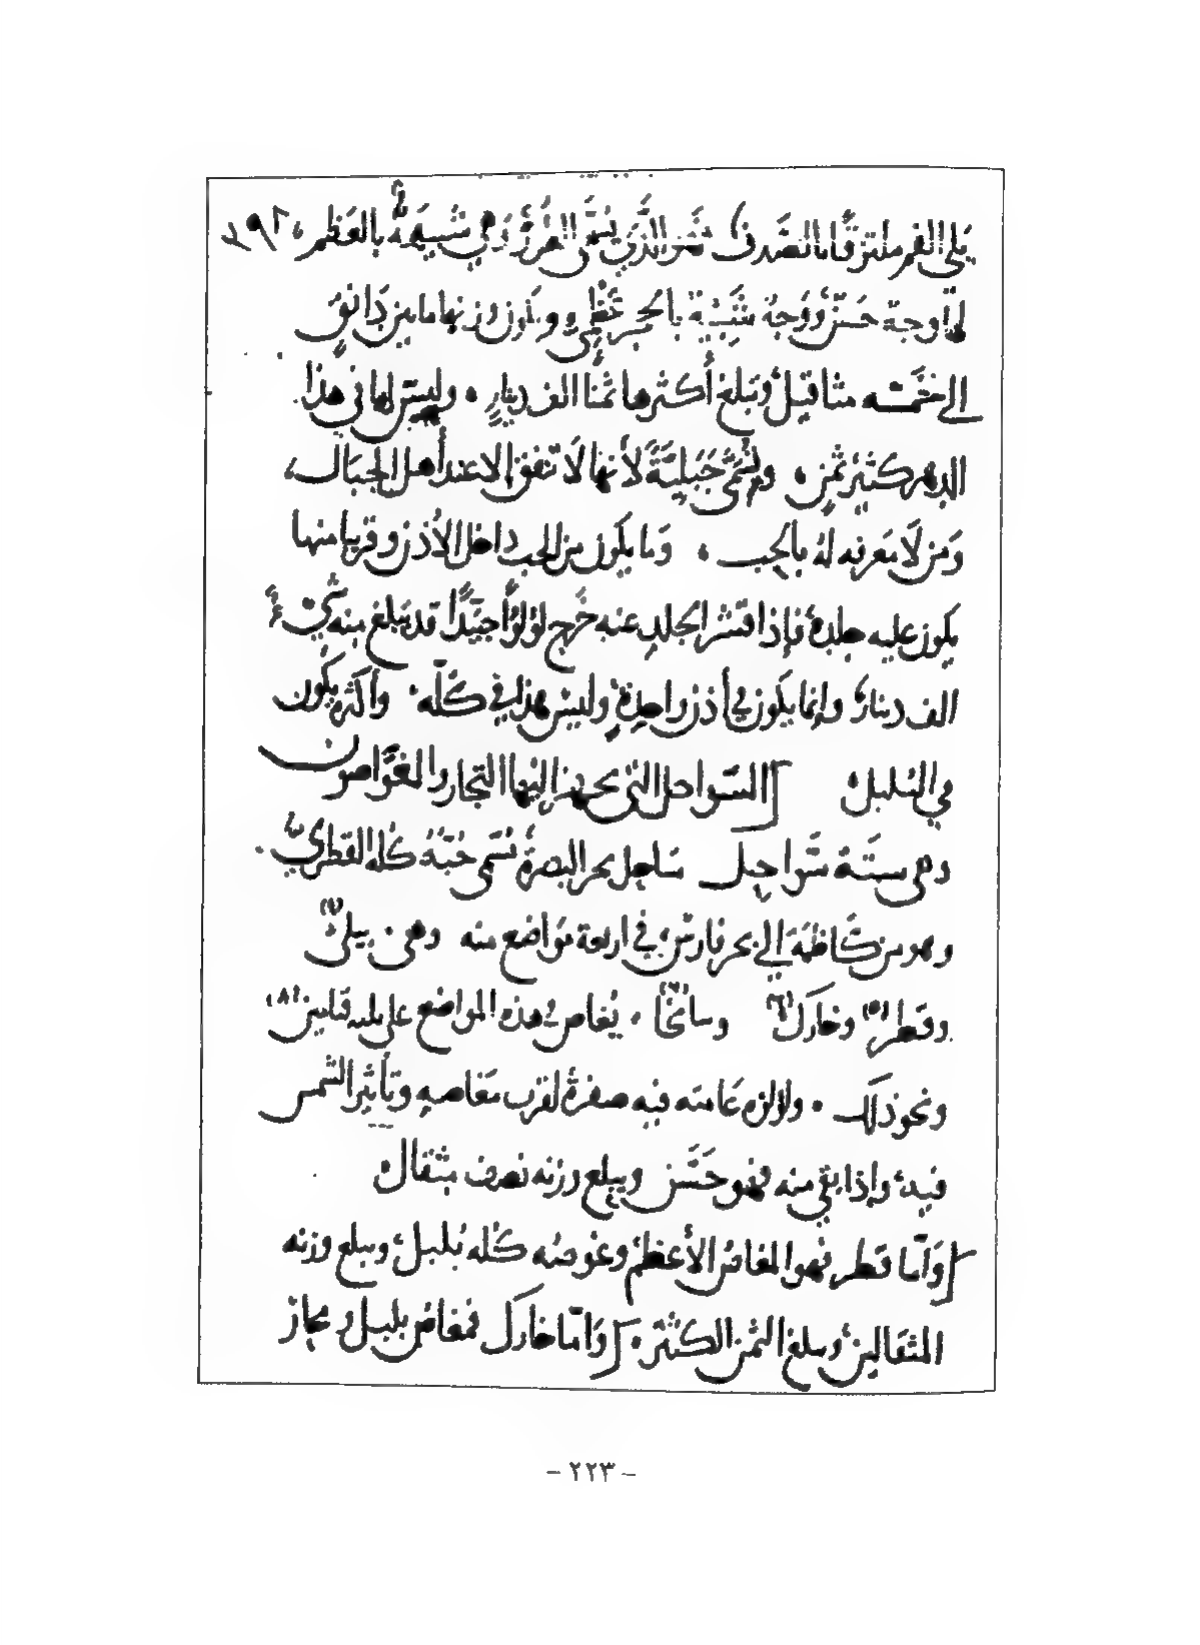 يَلي الفم ملتزقًا بالصَّدف ثم الذي يُسَمَّى وَهي شبيهة بالعَظم، ١٩٢
لها وجهٌ حَسَنٌ وَوَجهٌ شَبيهٌ بالحجر ويكون وزنها ما بين دَانقٍ
إلى خمسه مثاقيل وتبلغ أكثرها ثمنا الف دينارٍ ، وليسَ لها في هذا
الدهر كثيرُ ثمنٍ ، وتُسَمَّى جَبَليَّةً لأنها لَا تنفق إلا عند أهل الجبَال،
وَمن لَا مَعرفه لهُ بالحب ، وَما يكون من الحب داخل الأذن وقريبا منها
يكون عليه جلدة فإذا قشر الجلد عنه خَرج لؤلؤًا جيّدًا قد يبلغ منه شيءٌ
الف دينار، وإنما يكون في أذن واحدة، وليسَ هذا في كلّه، وأكثره يكون
في البُلبل السَّواحل التي يجهز إليها التجار والغوَّاصون
وهي ستَّة سَواحِل سَاحل بحر البصرةُ تُسَمَّى حَبَّهُ كُله القطريّ
وهو من كَاظمَة الى بحر فارسَ، في اربعة مَواضع منه وهي،
وقطر(٥) وخارك(٦) وسا(٧)، يُغاص في هذه المواضع على (٨)
ونحو ذلك ، ولؤلؤه عَامته فيه صفرةٌ لقرب مَغاصهِ وتأثير الشمس
فيه، وإذا بقي منه فهو حَسَن ويبلغ وزنه نصف مثقال
وَأمّا قَطر فهو المغاصُ الأعظم وغوصُه كُله بُلبل، ويبلغ وزنه
المثقالين، ويبلغ الثمن الكثير، وَأمّا خارك فمغاصُ بلبل ومحاز
- ٢٢٣ -